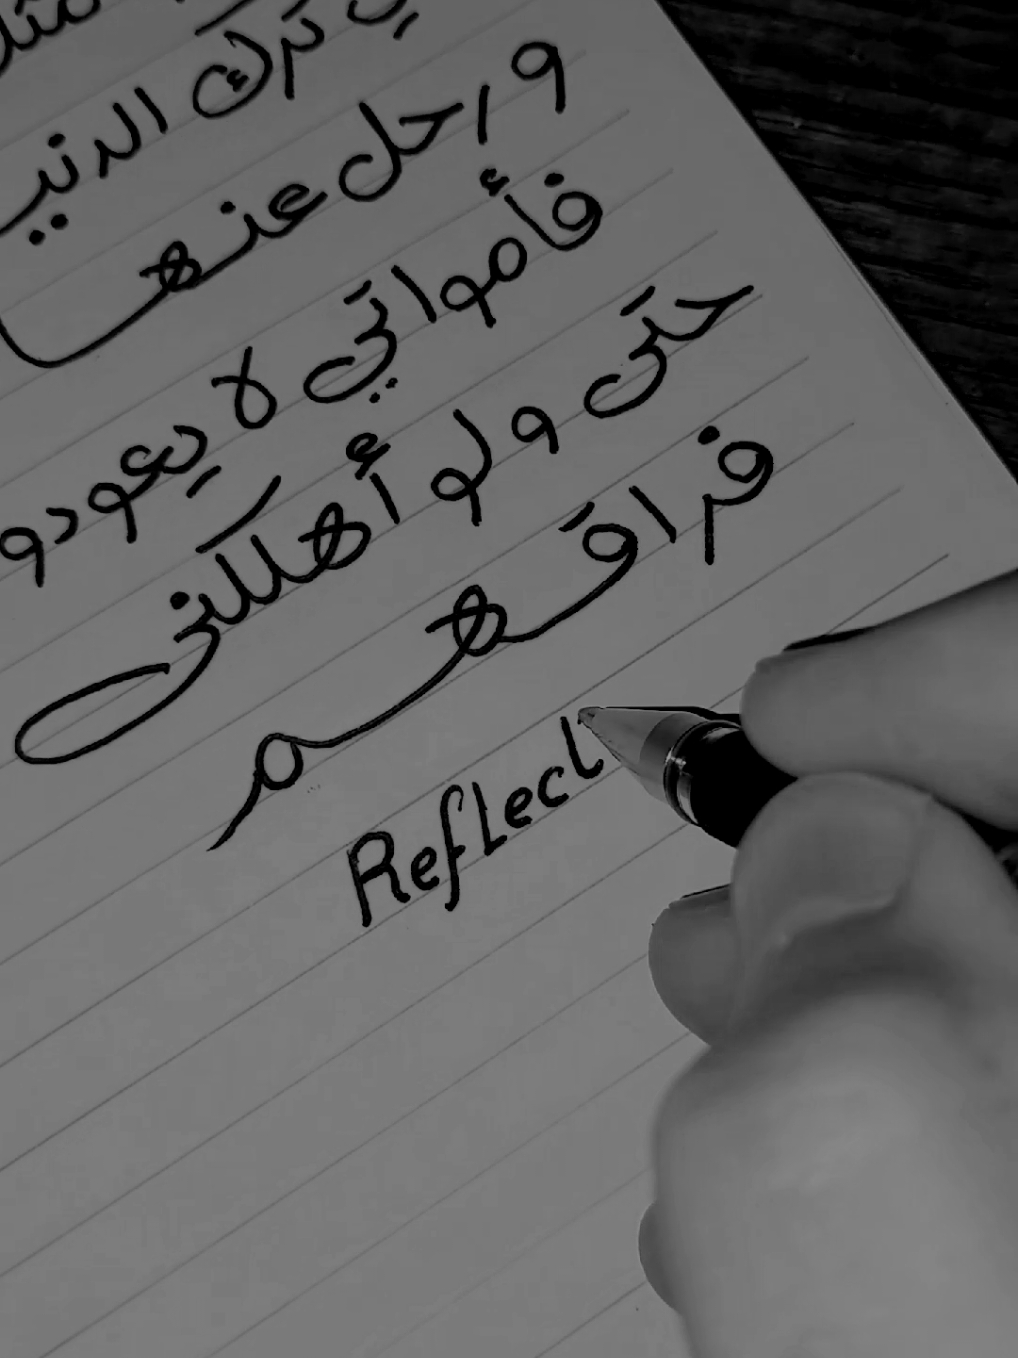 ترك الدنيـ
و رحل عنها
فأمواتي لا يعودو
حتى ولو أهلكني
فراقهم
Reflect